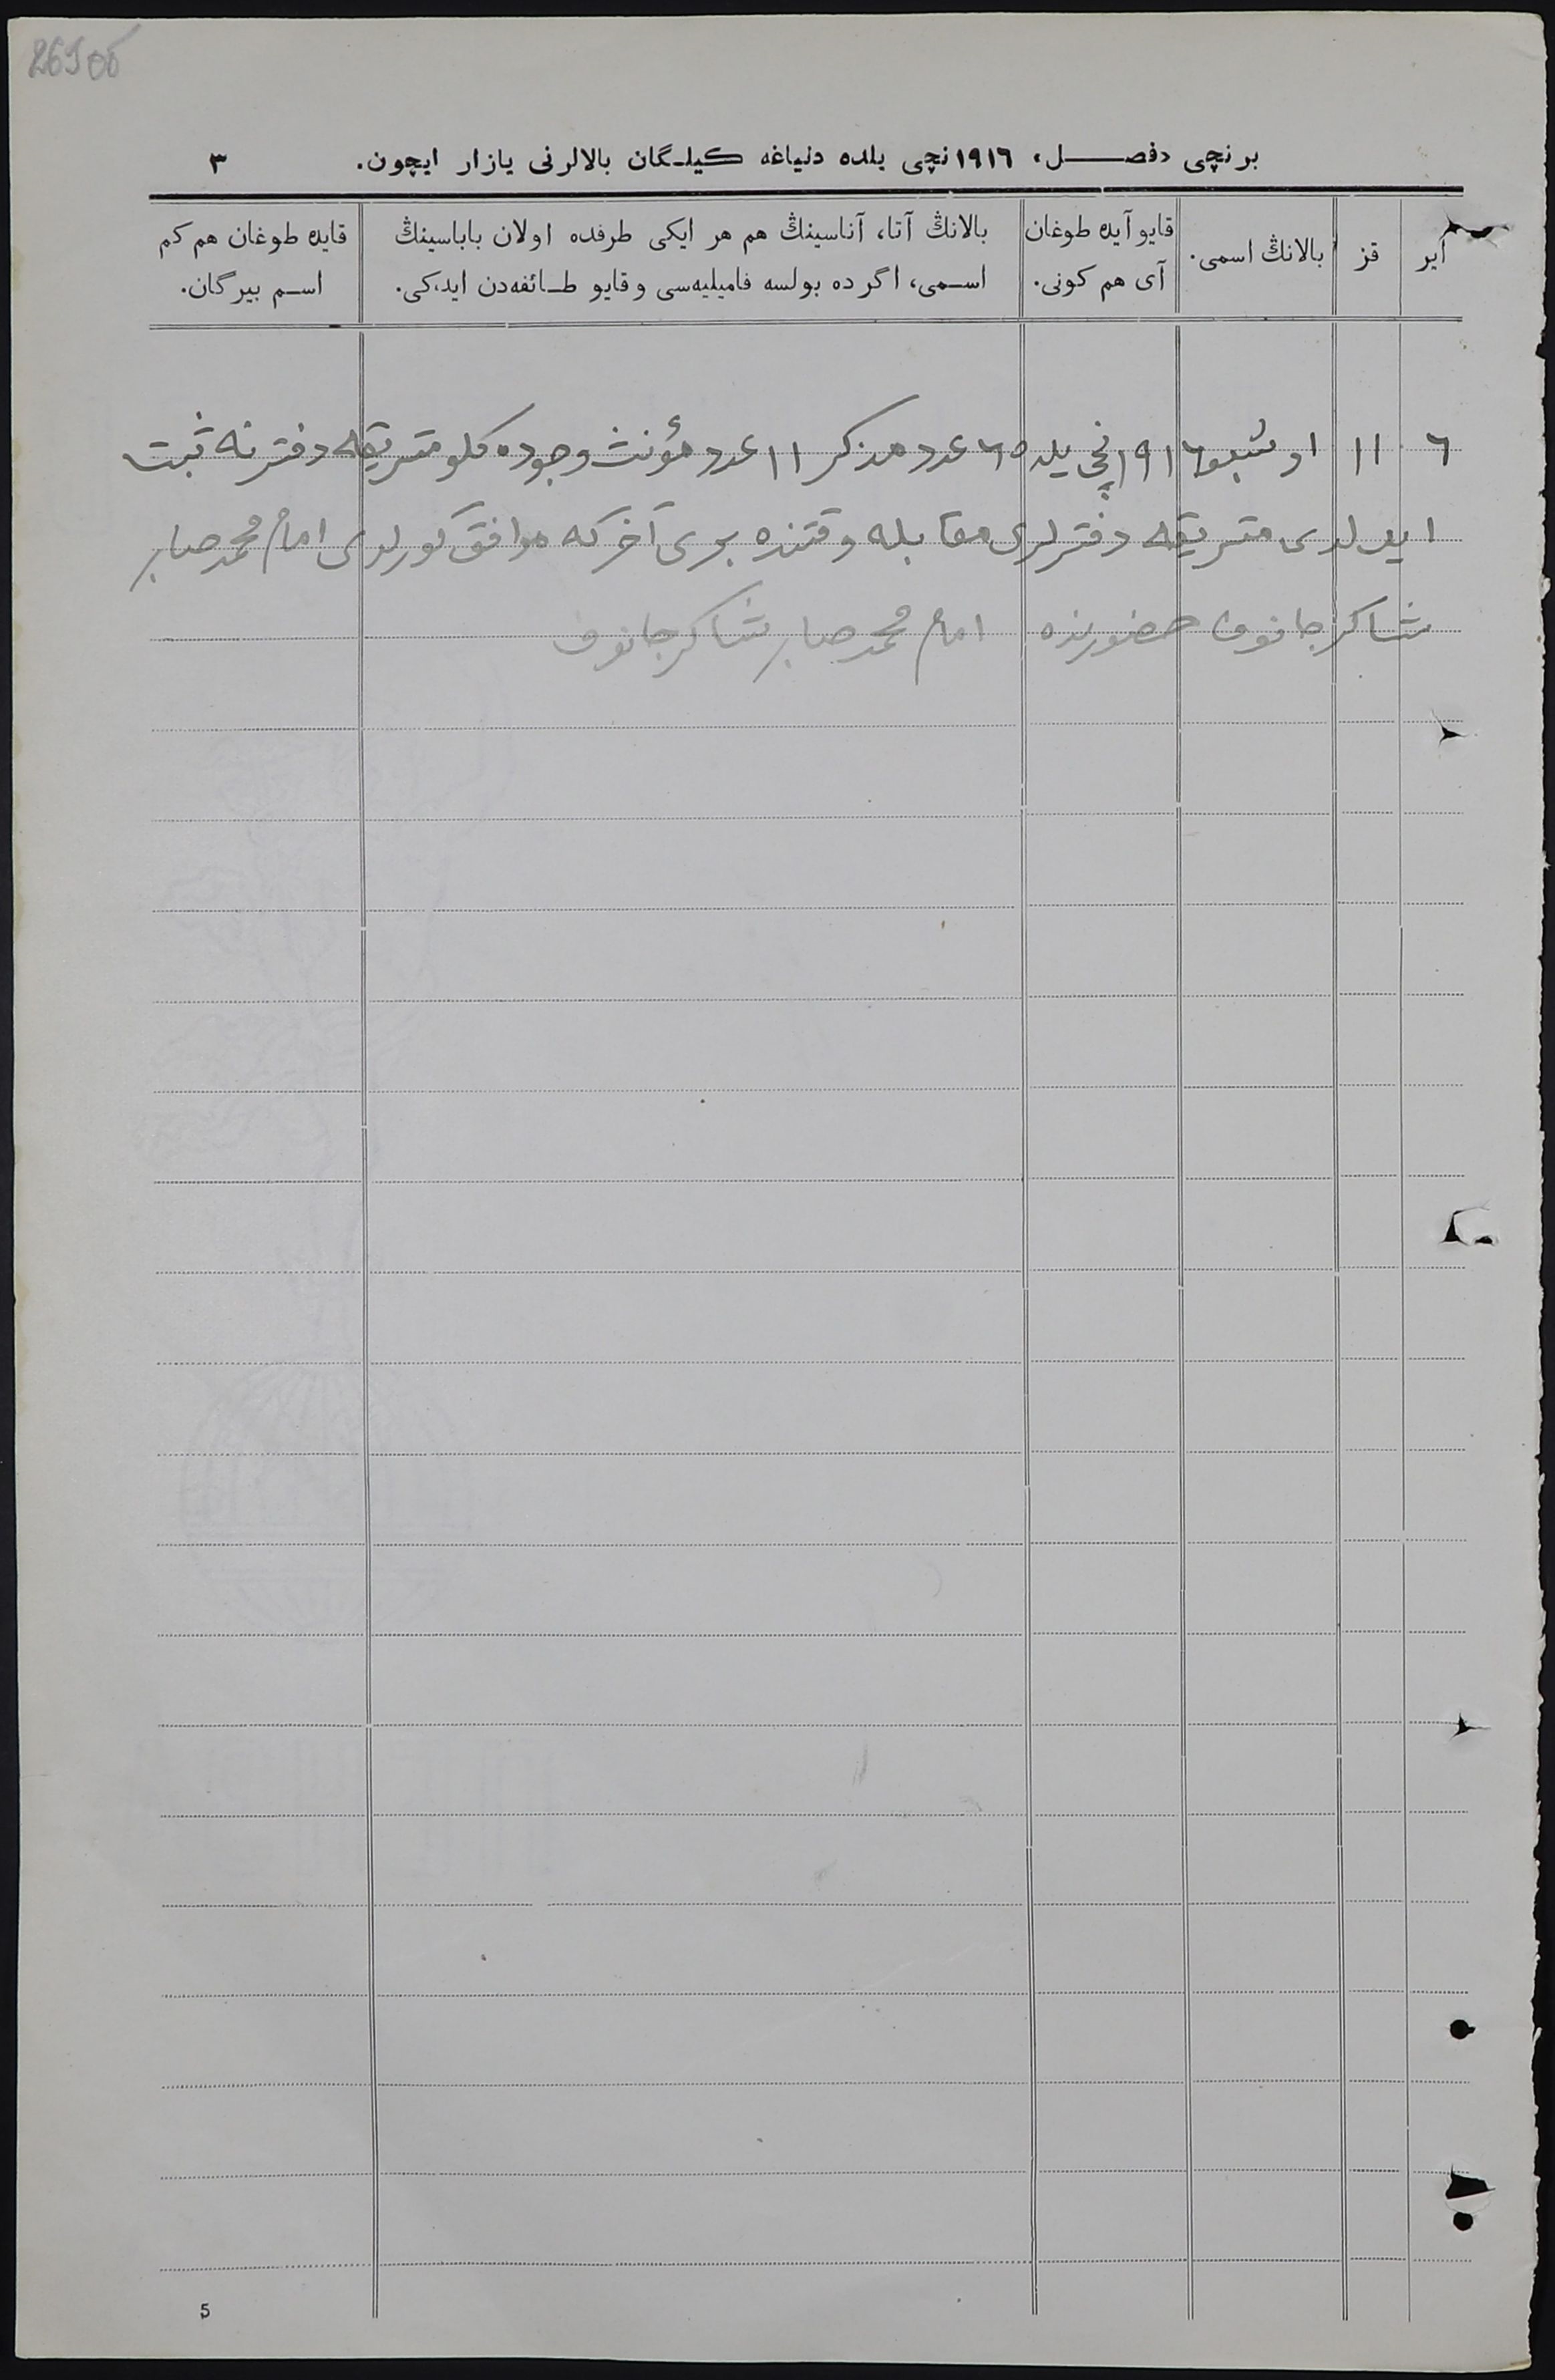 269об
برنچی «فصل» ۱۹۱٦نچی یلده دنیاغه كیلگان بالالرنی یازار ایچون. ۳
ایر
قز
بالانڭ اسمی.
قایو آیده طوغان
آی هم كونی.
بالانڭ آتا، آناسینڭ هم هر ایكی طرفده اولان باباسینڭ
اسمی، اگر ده بولسه فامیلیه‌سی و قایو طائفه‌دن ایدیكی.
قایده طوغان هم كم
اسم بیرگان.
٦ ۱۱ اوشبو ۱۹۱٦نچی یلده ٦ عدد مذكر ۱۱ عدد مؤنث وجوده كلو متریقه دفترنه ثبت
ایدلدی متریقه دفترلری مقابله وقتنده بری آخرکه موافق کورلدی امام محمد صابر
شاكرجانوف حضورنده امام محمد صابر شاكرجانوف
5